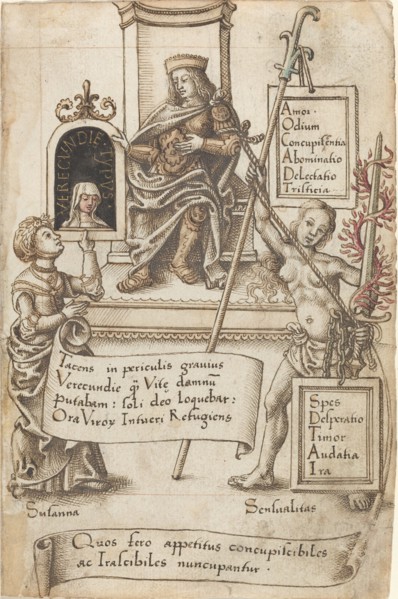 VERECUNDIE TIPVS
Amor
Odium
Concupiscentia
Abominatio
Delectatio
Tristicia
Tacens in periculis gravius
Verecundie q̄ Vite damnū
Putabam: soli deo loquebar:
Ora Viroꝝ Intueri Refugiens
Spes
Desperatio
Timor
Audatia
Ira
Susanna
Sensualitas
Quos fero appetitus concupiscibiles
ac Irascibiles nuncupantur.